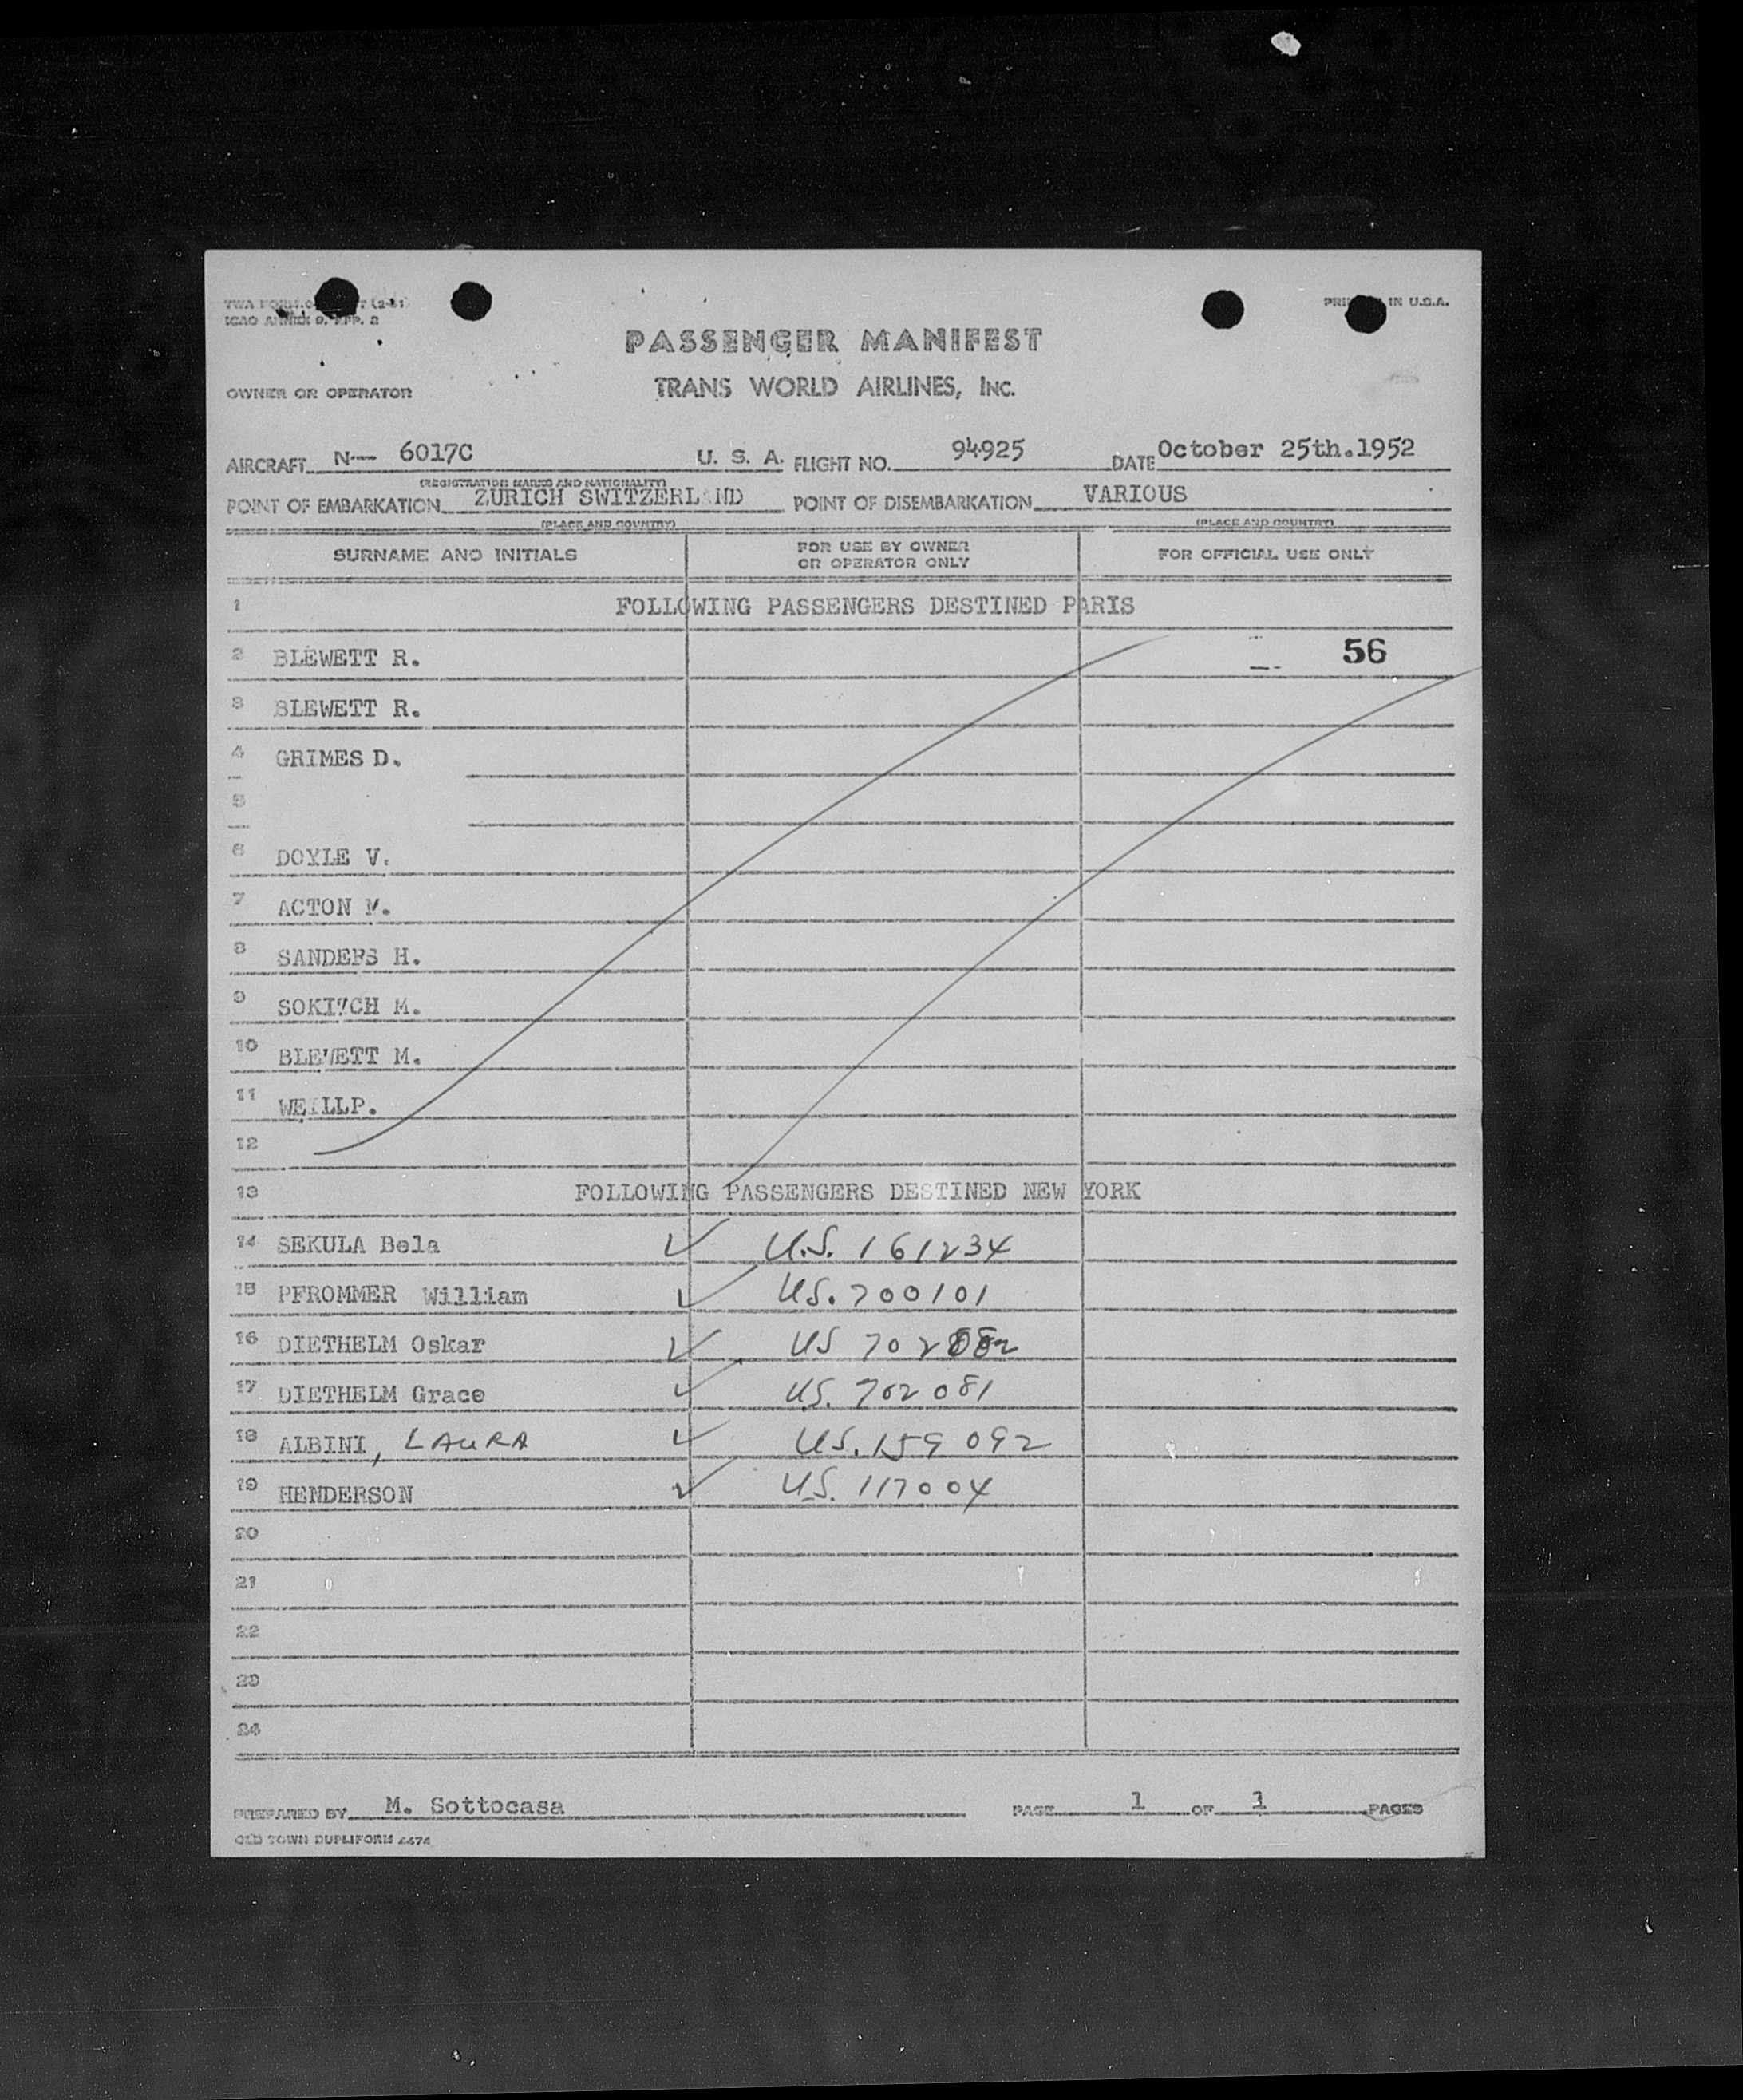 PRINTED IN U.S.A.
ICAO ANNEX 9. APP. 2
PASSENGER MANIFEST
OWNER OR OPERATOR TRANS WORLD AIRLINES, INC.
AIRCRAFT N-- 6017C U. S. A. FLIGHT NO. 94925 DATE October 25th.1952
(REGISTRATION MARKS AND NATIONALITY)
POINT OF EMBARKATION ZURICH SWITZERLAND POINT OF DISEMBARKATION VARIOUS
(PLACE AND COUNTRY) (PLACE AND COUNTRY)
SURNAME AND INITIALS FOR USE BY OWNER OR OPERATOR ONLY FOR OFFICIAL USE ONLY
1 FOLLOWING PASSENGERS DESTINED PARIS
2 BLEWETT R. 56
3 BLEWETT R.
4 GRIMES D.
5
6 DOYLE V.
7 ACTON M.
8 SANDERS H.
9 SOKITCH M.
10 BLEWETT M.
11 WEILLP.
12
13 FOLLOWING PASSENGERS DESTINED NEW YORK
14 SEKULA Bela ✓ U.S. 161234
15 PFROMMER William ✓ US. 700101
16 DIETHELM Oskar ✓ US 702082
17 DIETHELM Grace ✓ US. 702081
18 ALBINI, LAURA ✓ US. 159092
19 HENDERSON ✓ U.S. 117004
20
21
22
23
24
PREPARED BY M. Sottocasa PAGE 1 OF 1 PAGES
OLD TOWN DUPLIFORM 4474